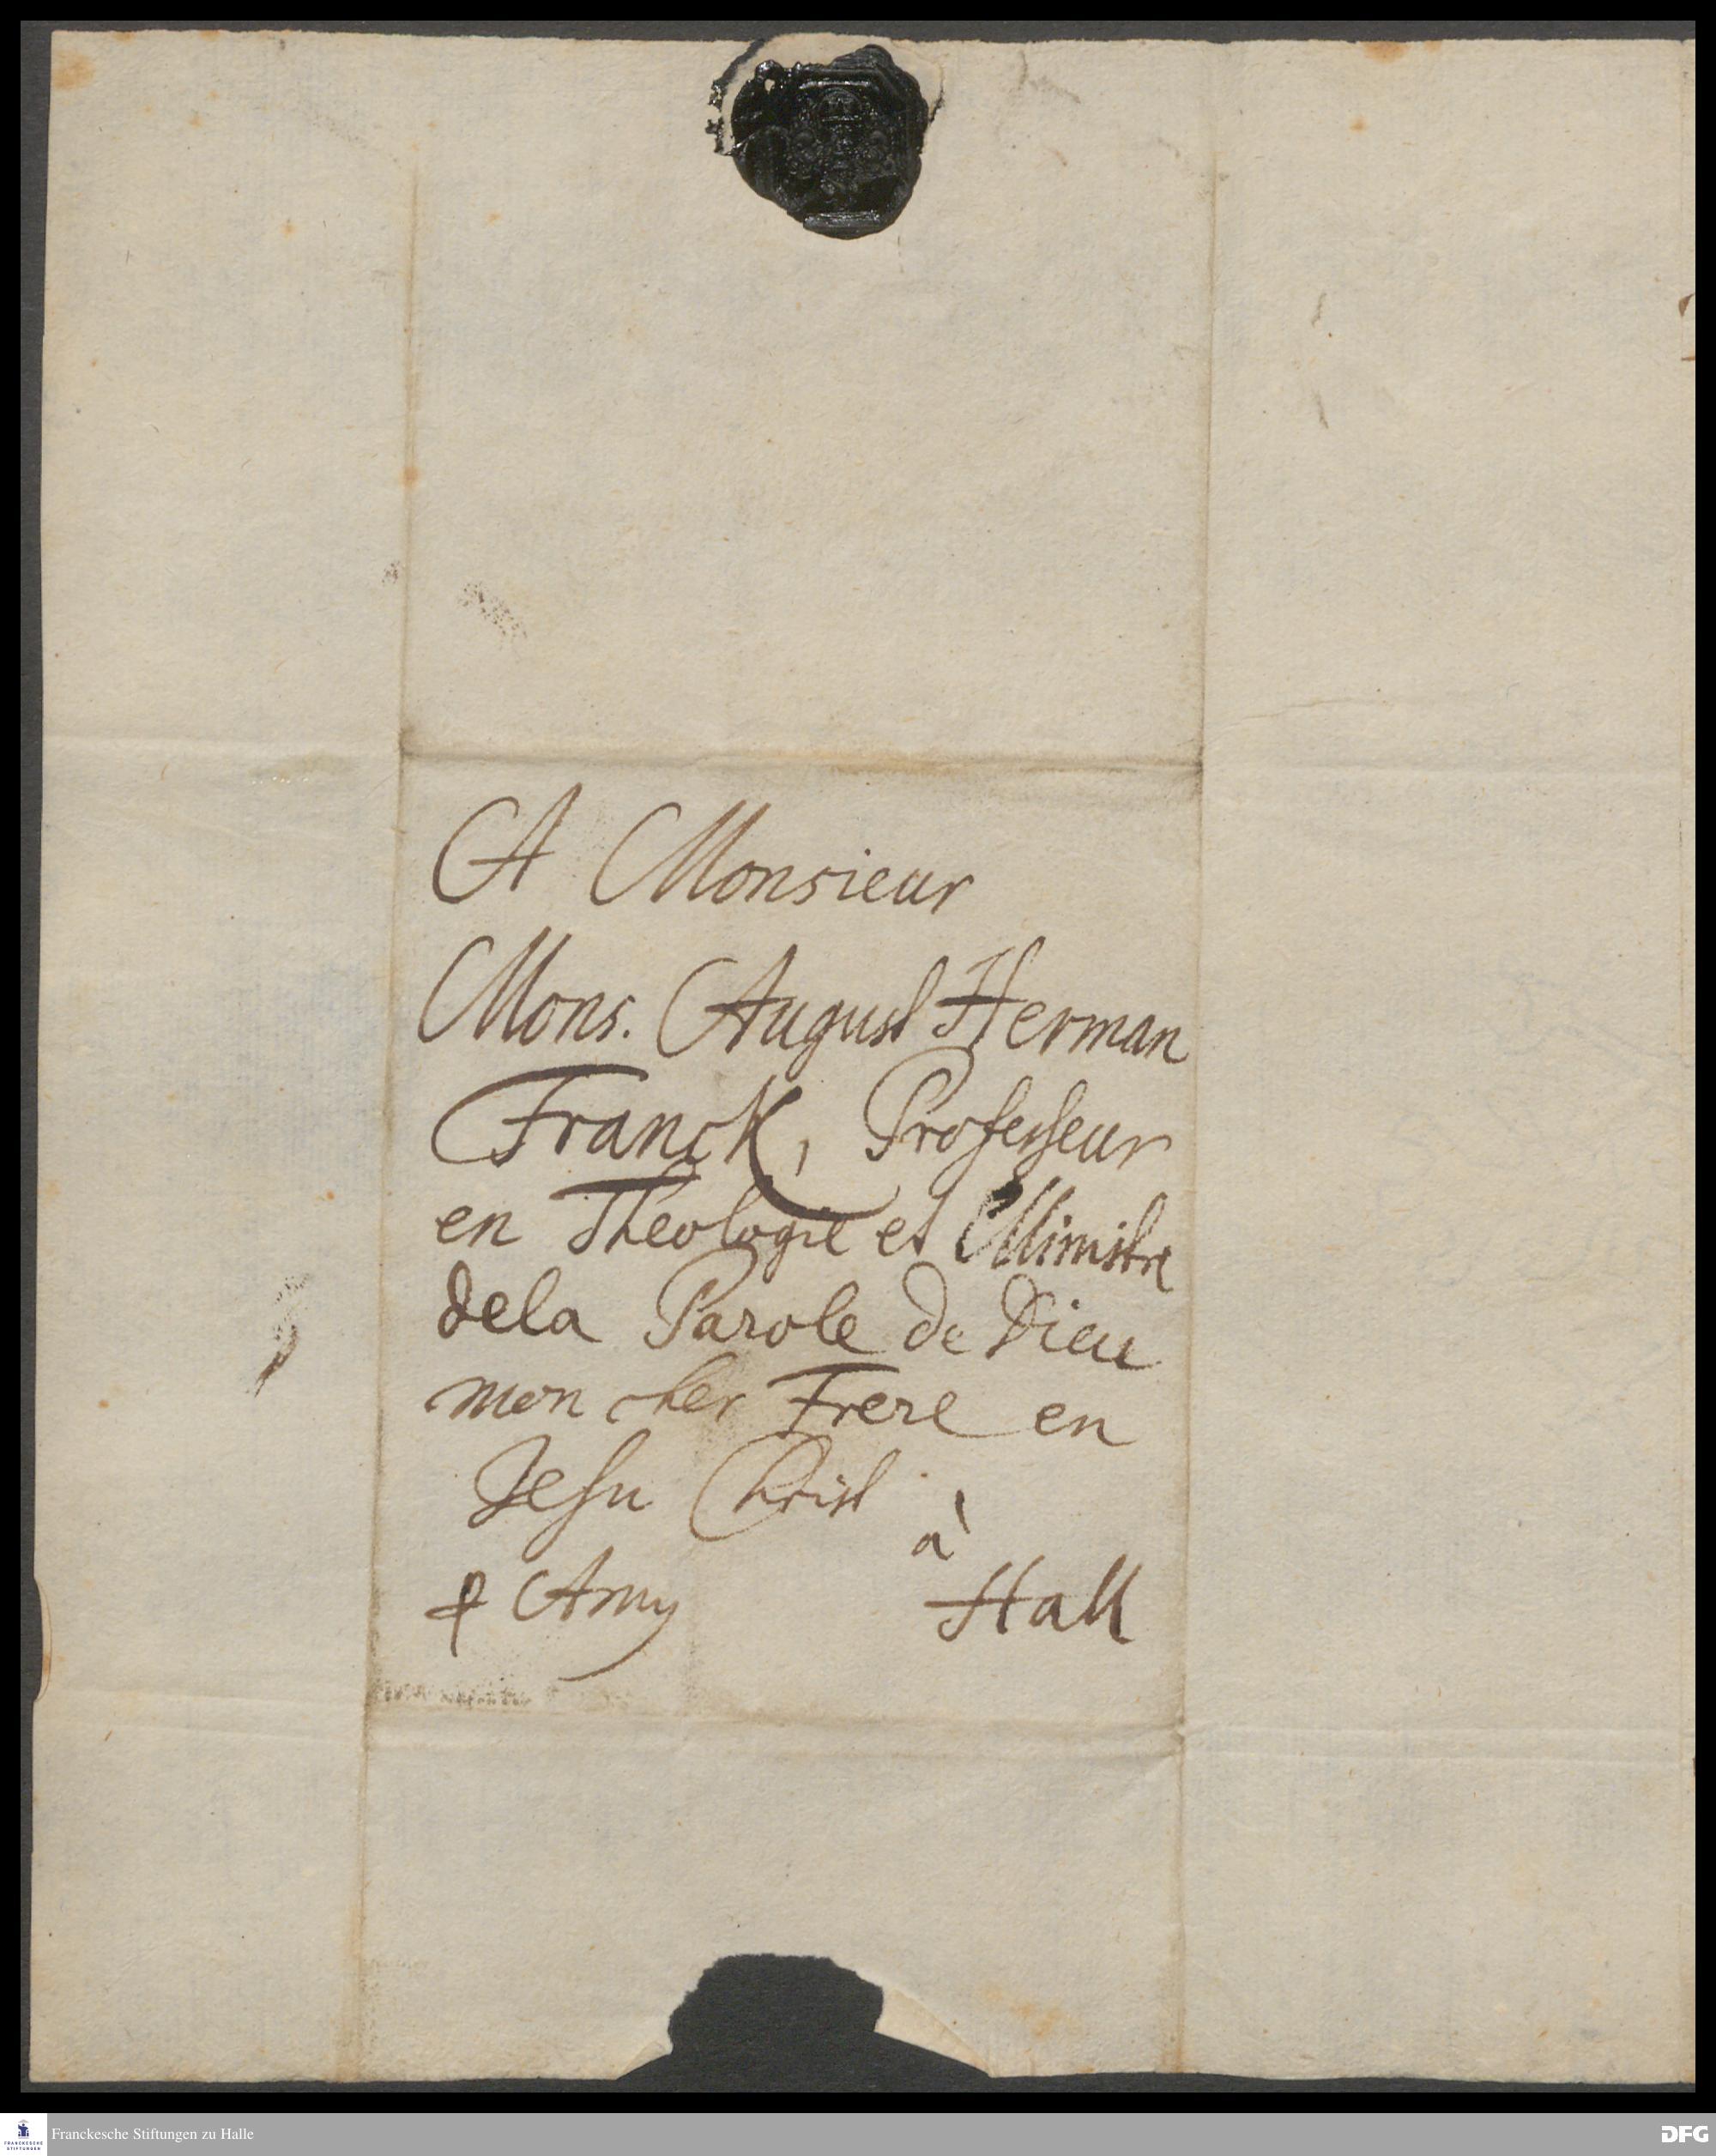 A Monsieur
Mons. August Herman
Franck, Professeur
en Theologie et Ministre
dela Parole de Dieu
mon cher Frere en
Jesu Christ
à
p Amy
Hall
FRANCKESCHE STIFTUNGEN
Franckesche Stiftungen zu Halle
DFG